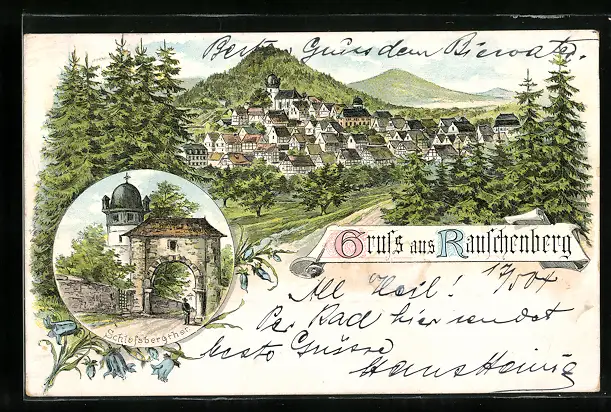 Besten Gruss dem Biervater.
Gruss aus Rauschenberg
Schlossbergthor
17/5 04
All Heil!
Per Rad hier sendet
beste Grüsse
Hans